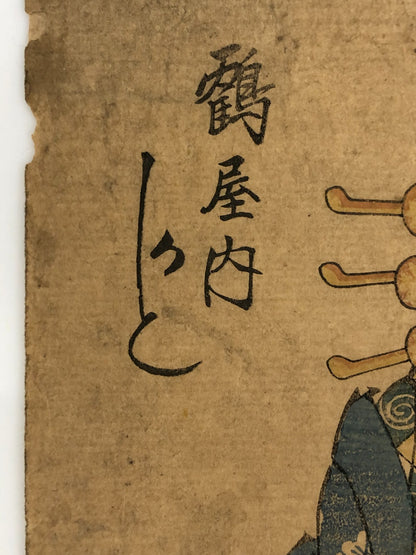 鶴屋内
しかと